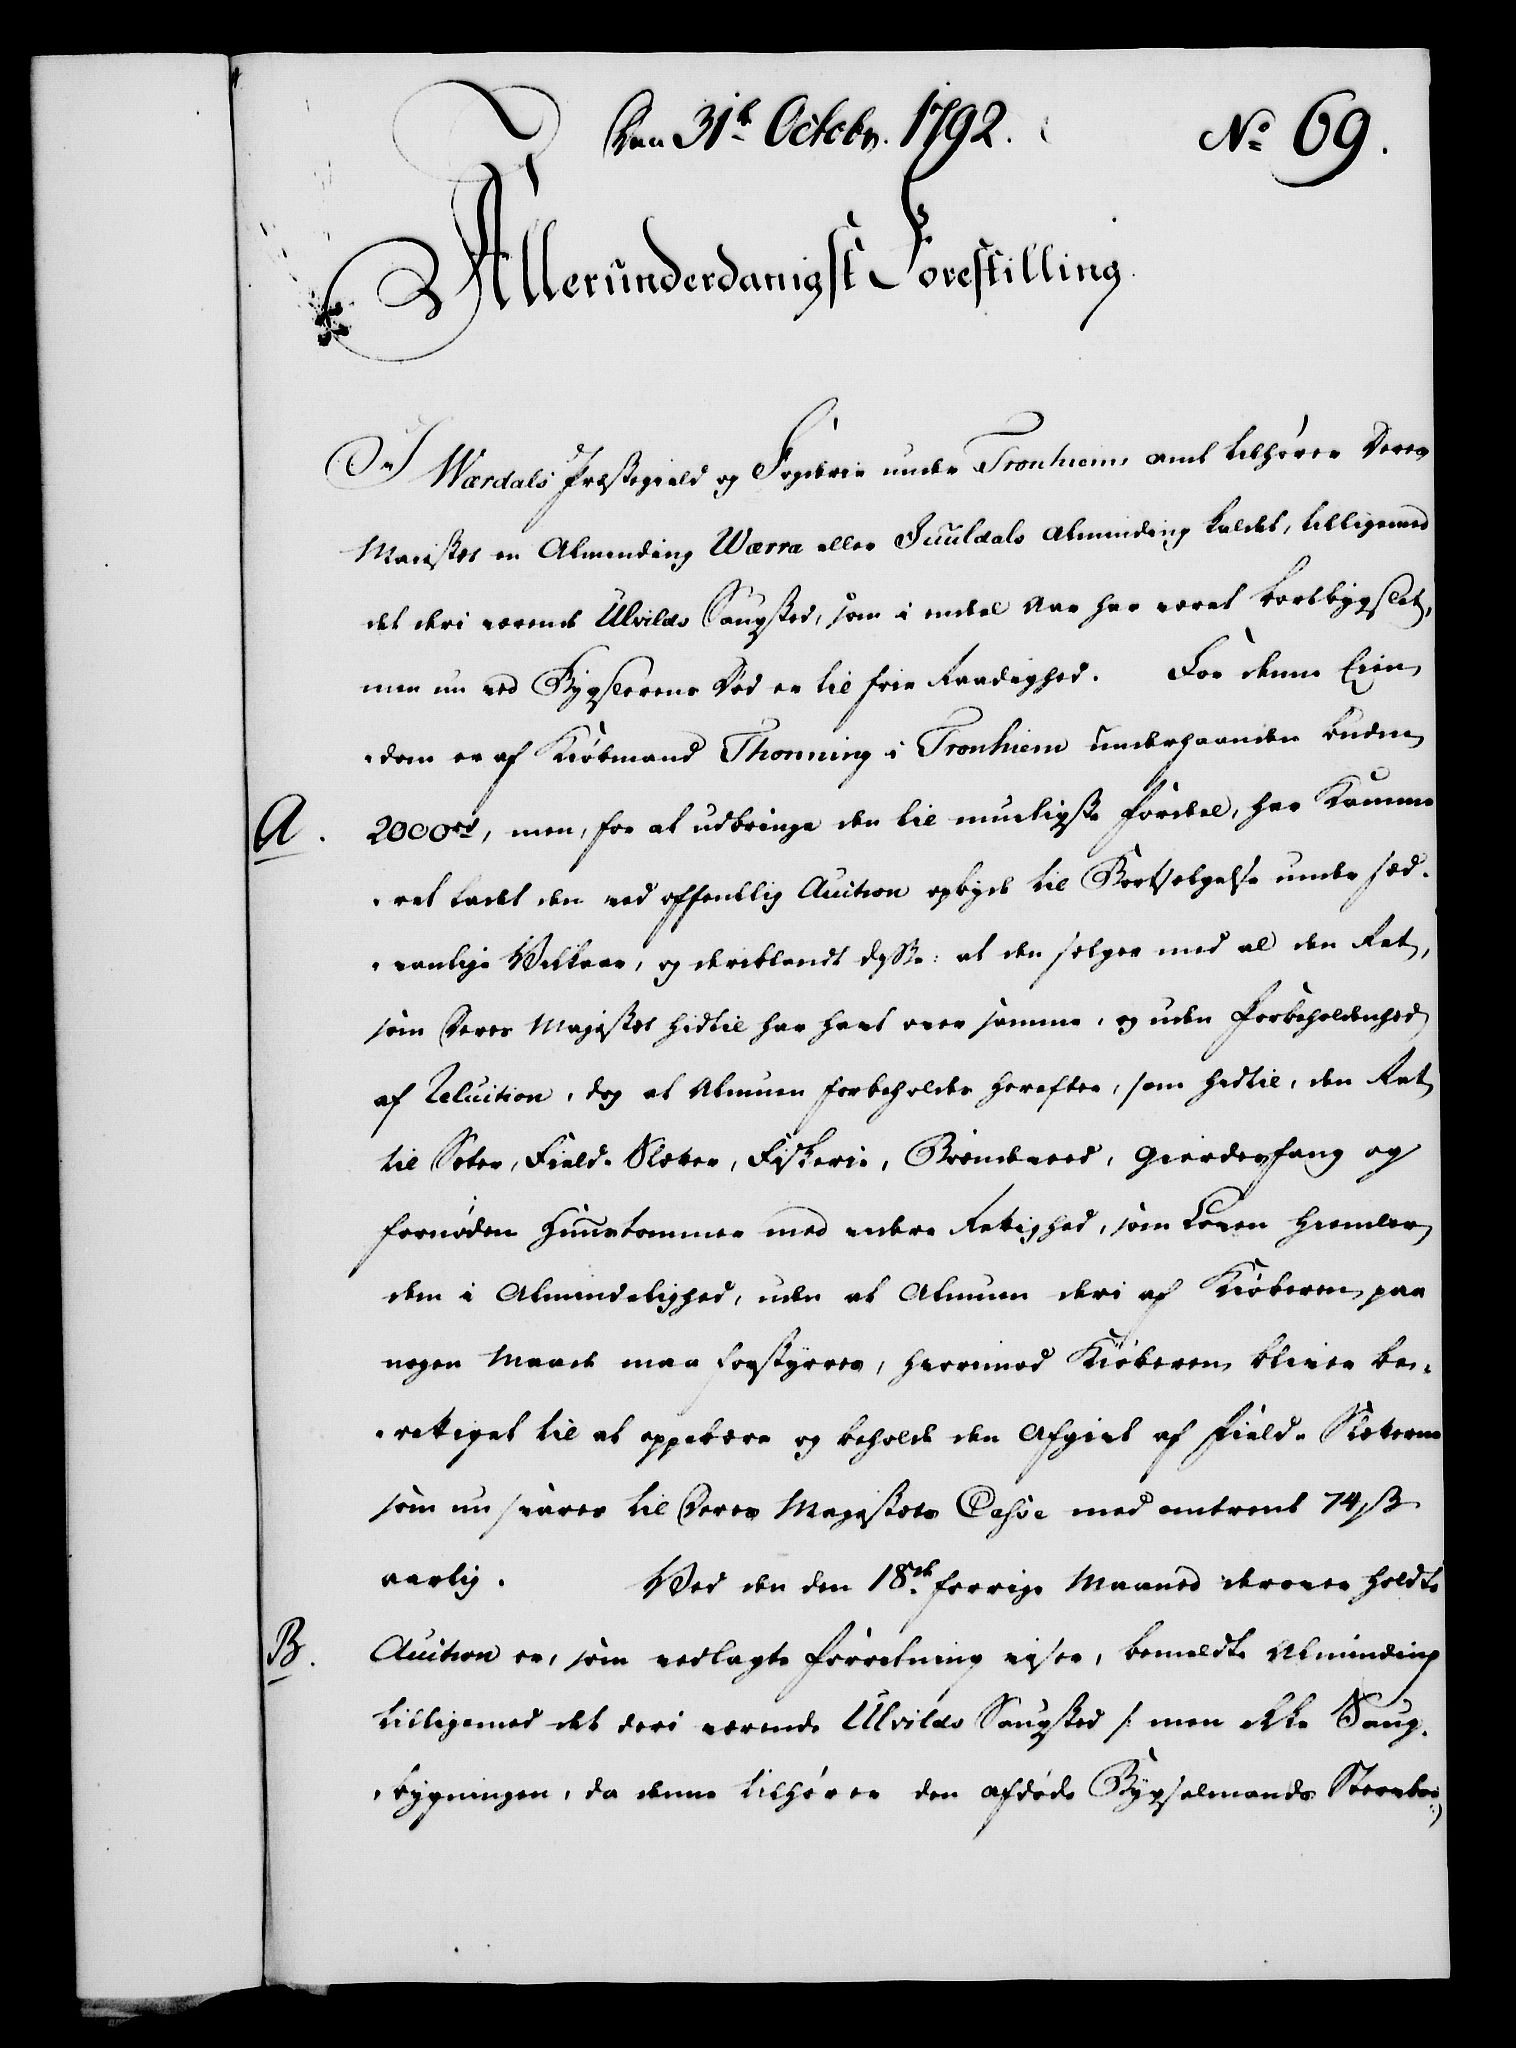 Den 31te Octobr. 1792. No 69.
Allerunderdanigst Forestilling.
I Wærdals Præstegield og Fogderie under Tronhiems Amt tilhører Deres
Majestet en Alminding Wærra eller Juuldals Alminding kaldet, tilligemed
det deri værende Ulvilds Saugsted, som i endeel Aar har været bortbygslet,
men nu ved Bygslerens Død er til frie Raadighed. For denne Eien-
-dom er af Kiøbmand Thonning i Tronhiem underhaanden buden
A. 2000 rd, men, for at udbringe den til muligste Fordeel, har Kamme-
-ret ladet den ved offentlig Auction opbyde til Bortsælgelse under sæd-
-vanlige Vilkaar, og deriblandt disse: at den sælges med al den Ret,
som Deres Majestet hidtil har havt over samme, og uden Forbeholdenhed
af Reluition, dog at Almuen forbeholdes herefter, som hidtil, den Ret
til Sæter, Field-Slætter, Fiskerie, Brændeveed, Gierdesfang og
fornøden Huustommer med videre Rettighed, som Loven hiemler
dem i Almindelighed, uden at Almuen deri af Kiøberen paa
nogen Maade maa forstyrres, hvorimod Kiøberen bliver be-
-rettiget til at oppebære og beholde den Afgivt af Field-Slætterne
som nu svares til Deres Majestets Casse med omtrent 74 ß
aarlig. Ved den den 18de forrige Maaned derover holdte
B. Auction er, som vedlagte Forretning viser, bemeldte Alminding
tilligemed det deri værende Ulvilds Saugsted /: men ikke Saug-
-bygningen, da denne tilhører den afdøde Bygselmands Sterbboe :/